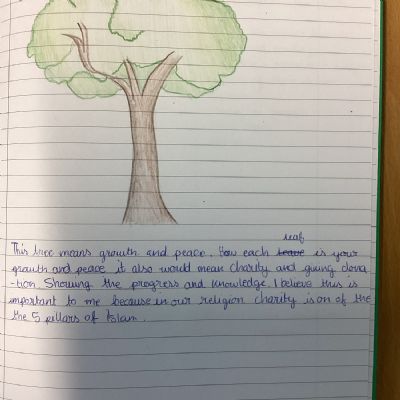 leaf
This tree means growth and peace. How each leave is your
growth and peace it also would mean charity and giving dona
-tion Showing the progress and knowledge. I believe this is
important to me because in our religion charity is on of the
the 5 pillars of Islam.